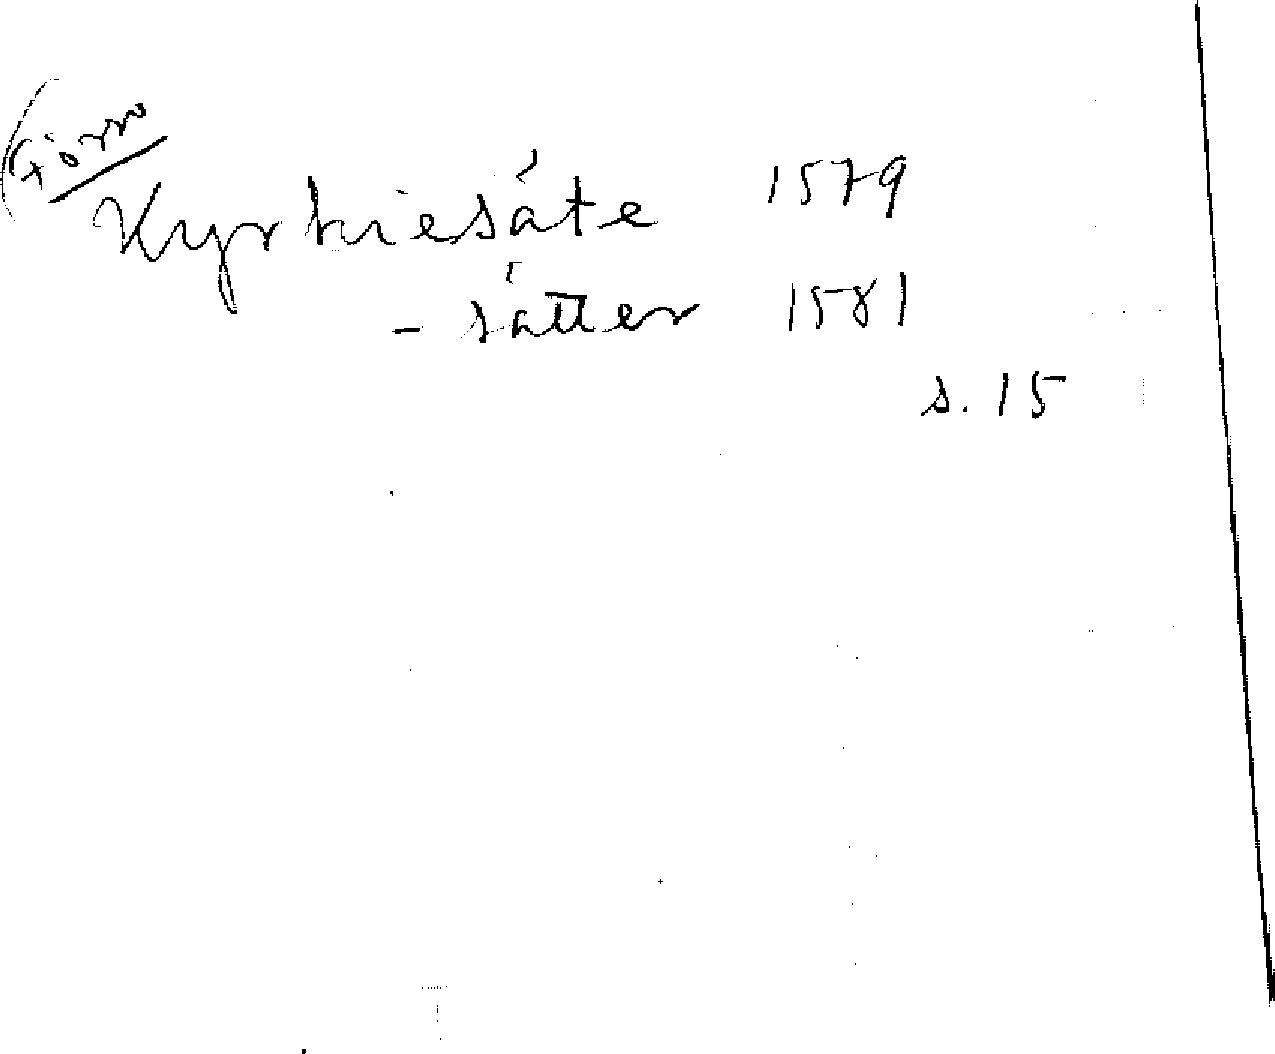 Kyrkiesáte 1579
- sátter 1581
s. 15